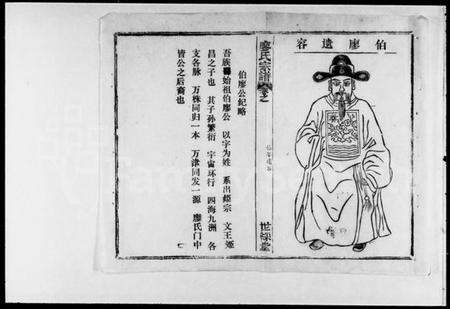 伯廖遺容
廖氏宗譜 卷之
世綵堂
伯廖公紀略
吾族始祖伯廖公 以字为姓 系出姬宗 文王姬
昌之子也 其子孙繁衍 宇宙环行 四海九洲 各
支各脉 万株同归一本 万津同发一源 廖氏门中
皆公之后裔也
七